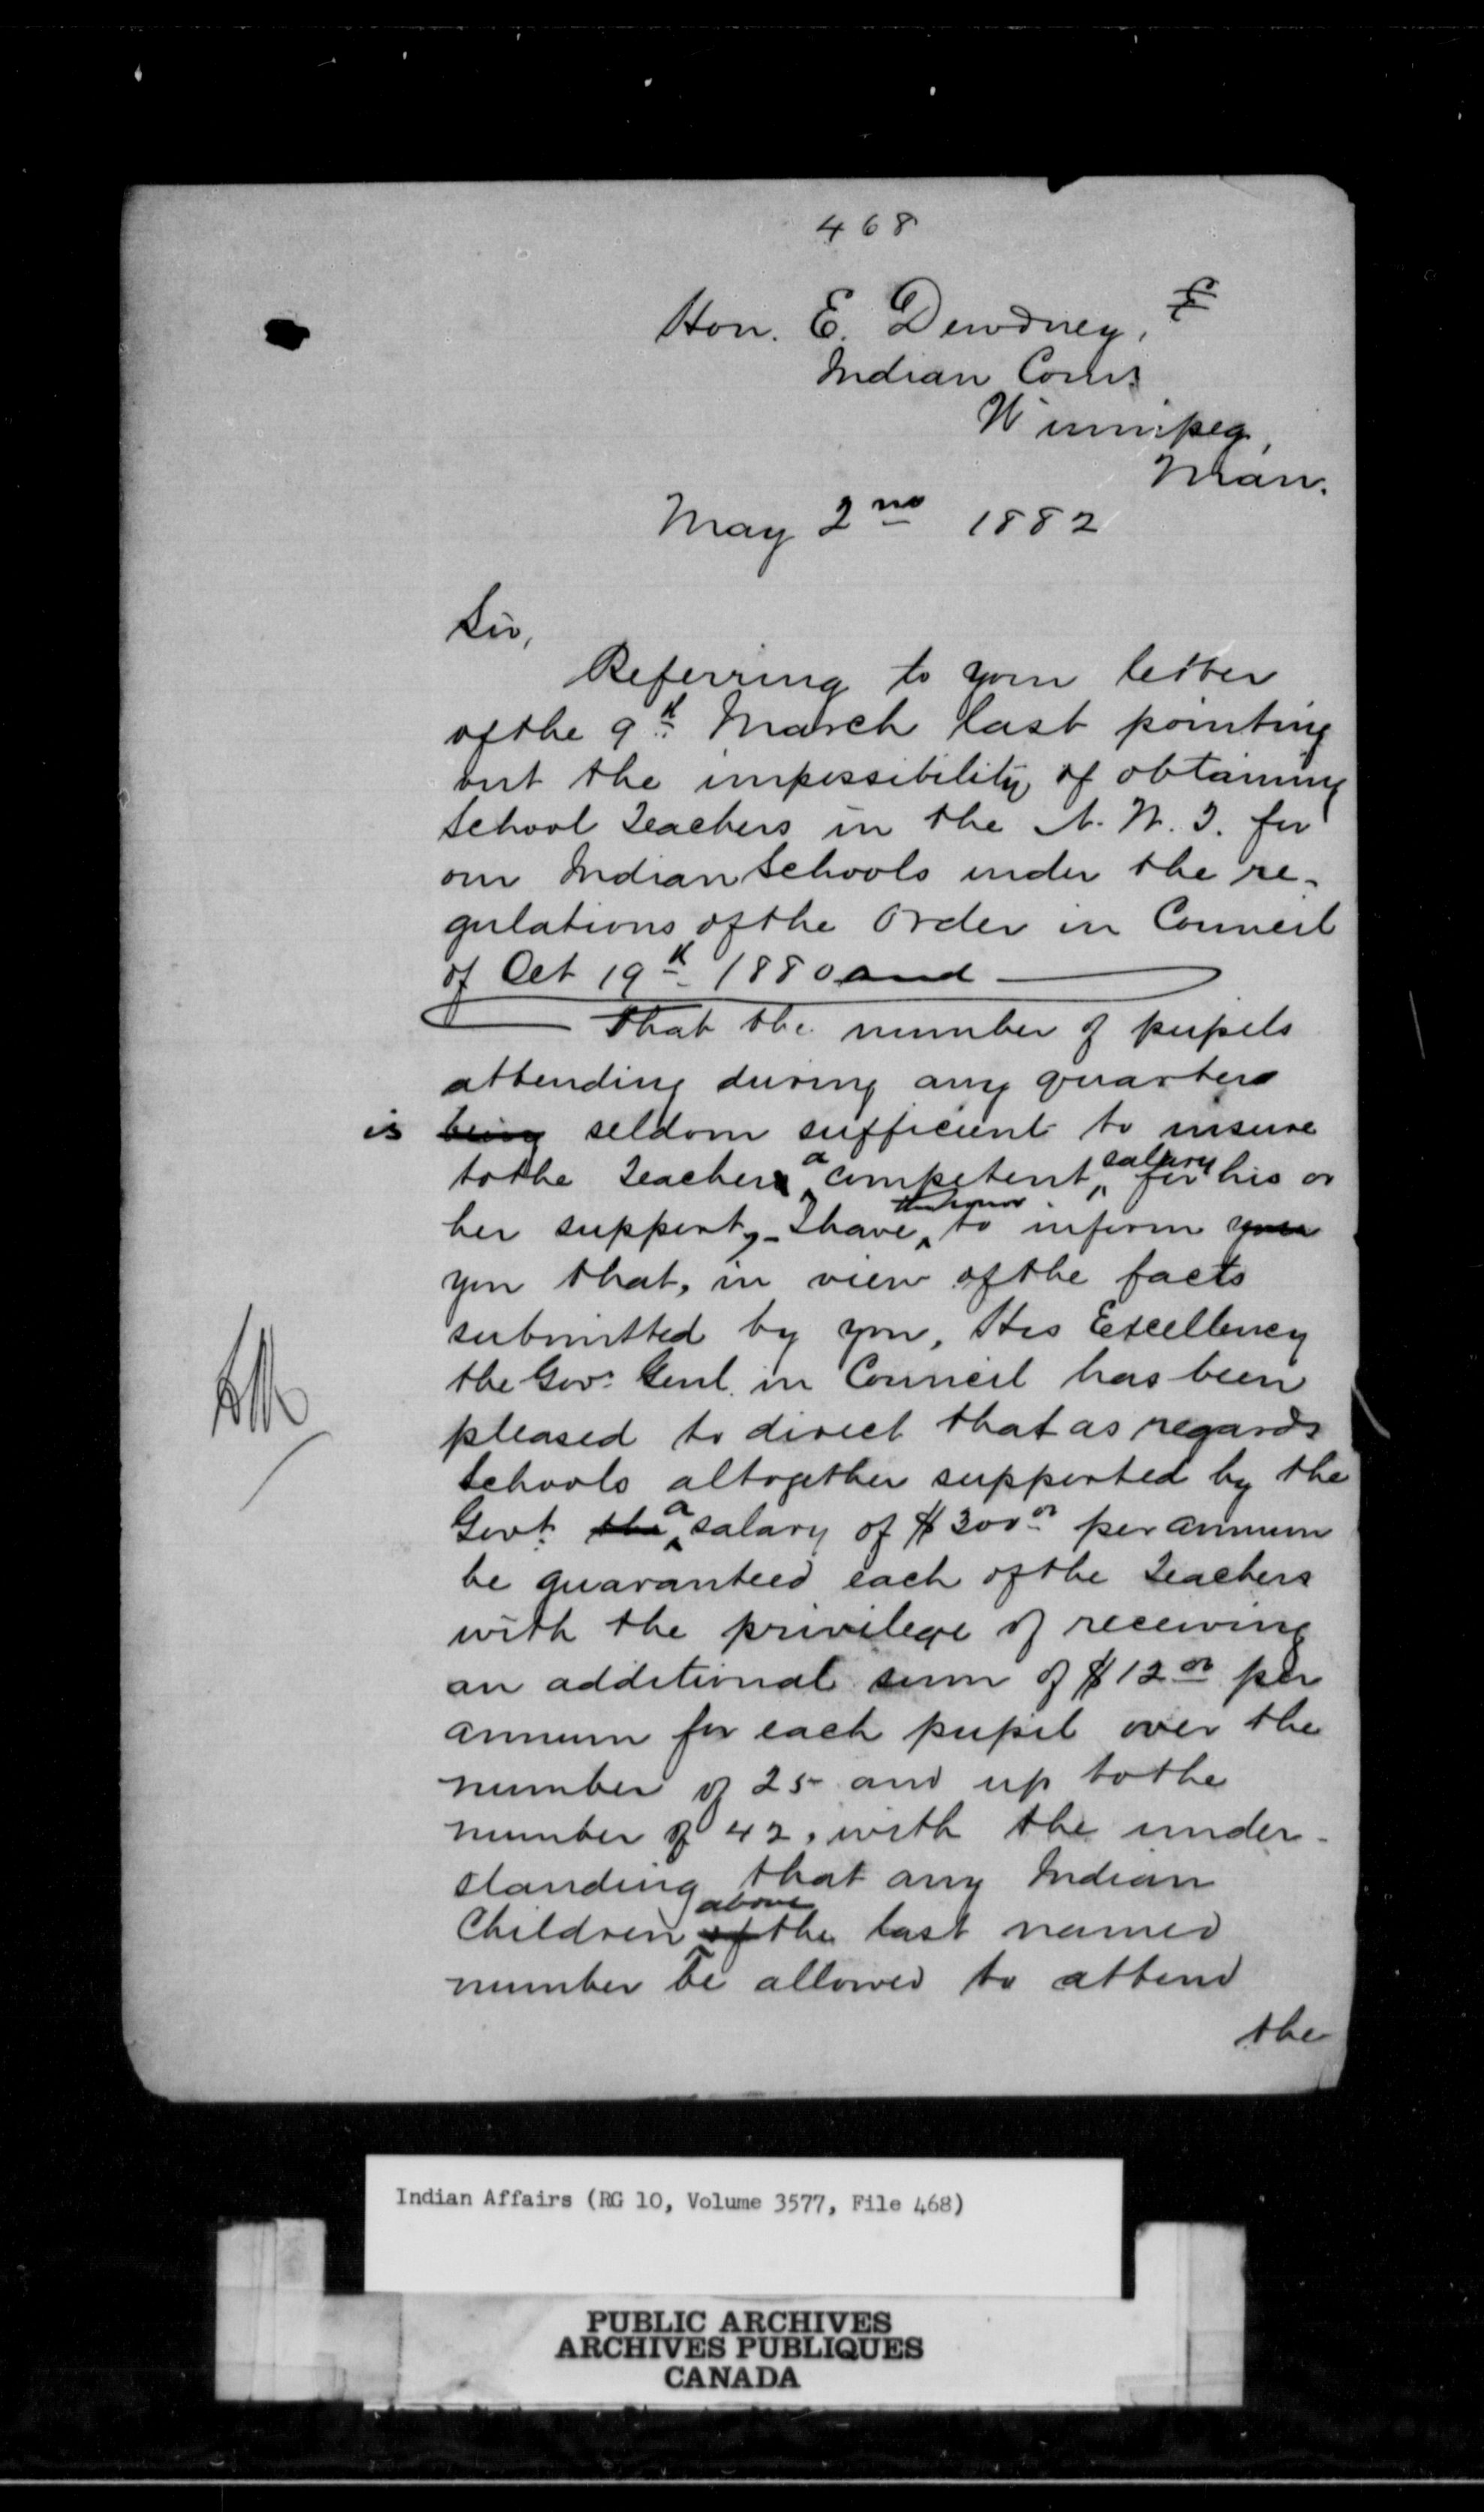 468
Hon. E. Dewdney,
Indian Comr
Winnipeg,
Man.
May 2nd 1882
Sir,
Referring to your letter
of the 9th March last pointing
out the impossibility of obtaining
School Teachers in the N. W. T. for
our Indian Schools under the re-
gulations of the Order in Council
of Oct 19th 1880 and
that the number of pupils
attending during any quarter
is being seldom sufficient to insure
to the Teacher a competent salary for his or
her support, I have the honor to inform you
you that, in view of the facts
submitted by you, His Excellency
the Govr Genl. in Council has been
pleased to direct that as regards
Schools altogether supported by the
Govt. the a salary of $300.00 per annum
be guaranteed each of the Teachers
with the privilege of receiving
an additional sum of $12.00 per
annum for each pupil over the
number of 25 and up to the
number of 42, with the under-
standing that any Indian
Children of above the last named
number be allowed to attend
the
Indian Affairs (RG 10, Volume 3577, File 468)
PUBLIC ARCHIVES
ARCHIVES PUBLIQUES
CANADA